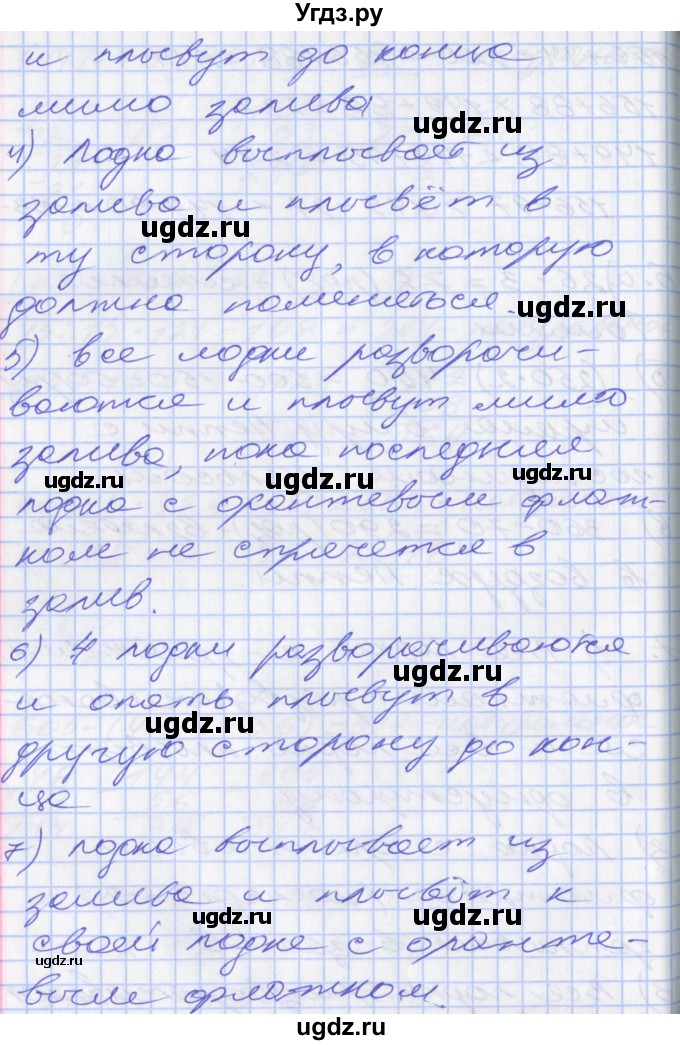 Угдз.ру
и плывут до конца
мимо залива
ugdz.ru
4) Лодка выплывает из
залива и плывёт в
ugdz.ru
ту сторону, в которую
должна поменяться.
ugdz.ru
5) все лодки разворачи-
ваются и плывут мимо
залива, пока последняя
ugdz.ru
ugdz.ru
лодка с оранжевым флаж-
ком не стречется в
залив.
6) 4 лодки разворачиваются
ugdz.ru
и опять плывут в
ugdz.ru
другую сторону до кон-
ца
7) лодка выплывает из
залива и плывёт к
ugdz.ru
ugdz.ru
своей лодке с оранже-
ugdz.ru
вым флажком.
ugdz.ru